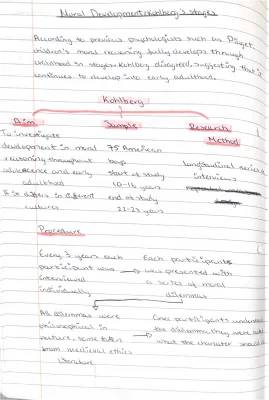 Moral Development: Kohlberg's Stages
According to previous psychologists such as Piaget,
children's moral reasoning fully develops through
childhood in stages. Kohlberg disagreed, suggesting that it
continues to develop into early adulthood.
Kohlberg
Aim
To investigate
development in moral
reasoning throughout
adolescence and early
adulthood
& if it differs in different
cultures
Sample
75 American
boys
start of study
10-16 years
end of study
22-28 years
Research
Method
longitudinal series of
interviews
Procedure
Every 3 years each
participant was
interviewed
individually
Each participant
was presented with
a series of moral
dilemmas
All dilemmas were
philosophical in
nature, some taken
from medieval ethics
literature
Once participants understood
the dilemma, they were
what the character should